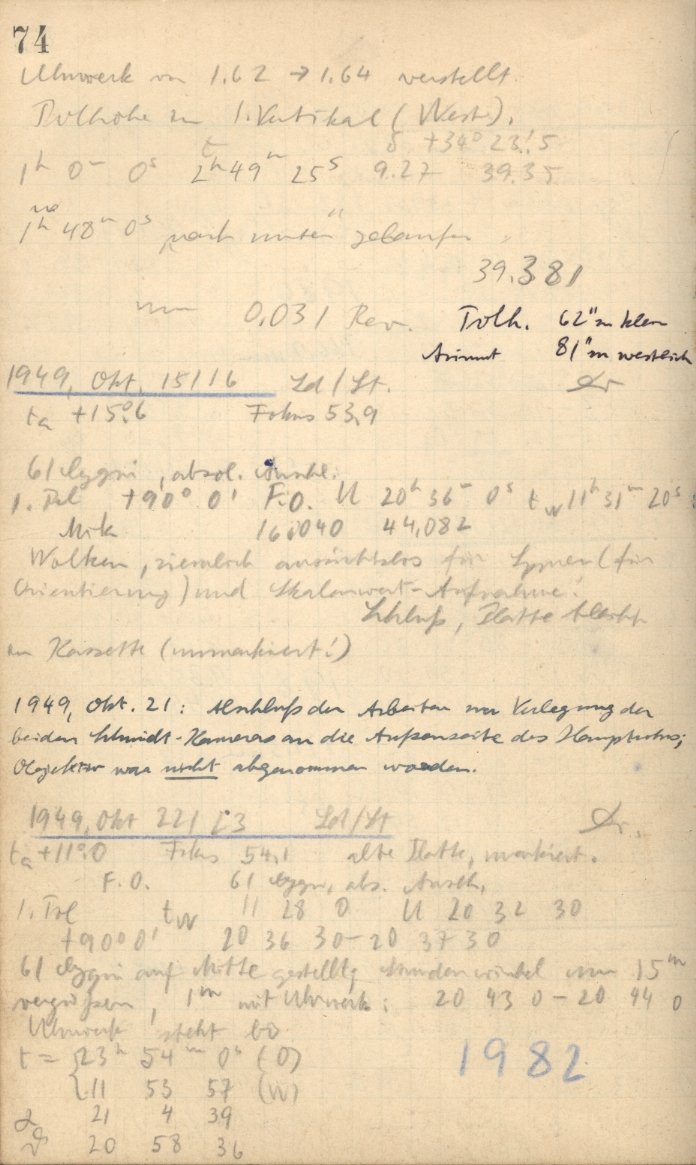 74
Uhrwerk von 1.62 → 1.64 verstellt.
Polhöhe im 1. Vertikal (West).
δ +34° 23!5
1ʰ 0ᵐ 0ˢ t 2ʰ 49ᵐ 25ˢ 9.27 39.35
1ʰ 48ᵐ 0ˢ nach unten gelaufen
39.381
um 0,031 Rev. Polh. 62" zu klein
Azimut 81" zu westlich
1949, Okt. 15/16 Ld/St. Dr
ta +15°.6 Fokus 53,9
61 Cygni, absol.
1. Pol +90° 0' F.O. U 20ʰ 36ᵐ 0ˢ t w 11ʰ 31ᵐ 20ˢ
Mik 16,040 44,082
Wolken, ziemlich aussichtslos für Spuren (für
Orientierung) und Skalenwert-Aufnahme!
Schluß, Platte bleibt
in Kassette (unmarkiert!)
1949, Okt. 21: Abschluß der Arbeiten zur Verlegung der
beiden Schmidt-Kameras an die Außenseite des Hauptrohrs;
Objektiv war nicht abgenommen worden.
1949, Okt 22/23 Ld/St Dr.
ta +11°.0 Fokus 54,1 alte Platte, markiert.
F.O. 61 Cygni, abs. Anschl.
1. Pol t w 11 28 0 U 20 32 30
+90° 0' 20 36 30 – 20 37 30
61 Cygni auf Mitte gestellt, Stundenwinkel um 15ᵐ
vergrößern, 1ᵐ mit Uhrwerk: 20 43 0 – 20 44 0
Uhrwerk steht bis
t = {23ʰ 54ᵐ 0ˢ (O)
{11 53 57 (W)
α 21 4 39
ϑ 20 58 36
1982